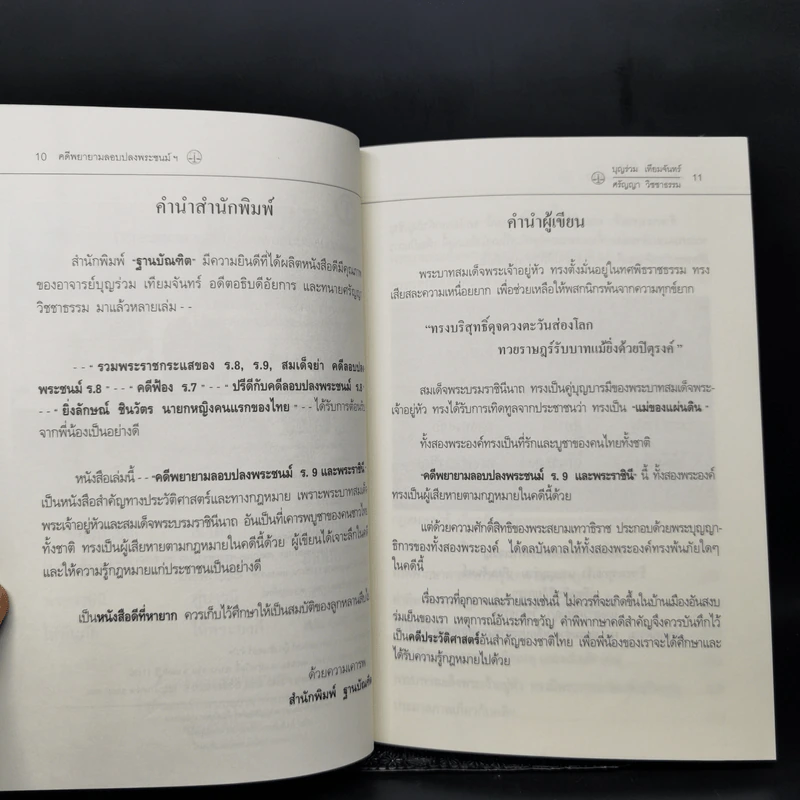 10 คดีพยายามลอบปลงพระชนม์ ฯ
คำนำสำนักพิมพ์
สำนักพิมพ์ -ฐานบัณฑิต- มีความยินดีที่ได้ผลิตหนังสือดีมีคุณภาพ
ของอาจารย์บุญร่วม เทียมจันทร์ อดีตอธิบดีอัยการ และทนายศรัญญา
วิชชาธรรม มาแล้วหลายเล่ม - -
- - - รวมพระราชกระแสของ ร.8, ร.9, สมเด็จย่า คดีลอบปลง
พระชนม์ ร.8 - - - คดีฟ้อง ร.7 - - - ปรีดีกับคดีลอบปลงพระชนม์ ร.8
- - - ยิ่งลักษณ์ ชินวัตร นายกหญิงคนแรกของไทย - - - ได้รับการต้อนรับ
จากพี่น้องเป็นอย่างดี
หนังสือเล่มนี้ - - -คดีพยายามลอบปลงพระชนม์ ร. 9 และพระราชินี
เป็นหนังสือสำคัญทางประวัติศาสตร์และทางกฎหมาย เพราะพระบาทสมเด็จ
พระเจ้าอยู่หัวและสมเด็จพระบรมราชินีนาถ อันเป็นที่เคารพบูชาของคนชาวไทย
ทั้งชาติ ทรงเป็นผู้เสียหายตามกฎหมายในคดีนี้ด้วย ผู้เขียนได้เจาะลึกในคดี
และให้ความรู้กฎหมายแก่ประชาชนเป็นอย่างดี
เป็นหนังสือดีที่หายาก ควรเก็บไว้ศึกษาให้เป็นสมบัติของลูกหลานสืบไป
ด้วยความเคารพ
สำนักพิมพ์ ฐานบัณฑิต
บุญร่วม เทียมจันทร์
ศรัญญา วิชชาธรรม 11
คำนำผู้เขียน
พระบาทสมเด็จพระเจ้าอยู่หัว ทรงตั้งมั่นอยู่ในทศพิธราชธรรม ทรง
เสียสละความเหนื่อยยาก เพื่อช่วยเหลือให้พสกนิกรพ้นจากความทุกข์ยาก
"ทรงบริสุทธิ์ดุจดวงตะวันส่องโลก
ทวยราษฎร์รับบาทแม้ยิ่งด้วยปิตุรงค์"
สมเด็จพระบรมราชินีนาถ ทรงเป็นคู่บุญบารมีของพระบาทสมเด็จพระ-
เจ้าอยู่หัว ทรงได้รับการเทิดทูลจากประชาชนว่า ทรงเป็น -แม่ของแผ่นดิน -
ทั้งสองพระองค์ทรงเป็นที่รักและบูชาของคนไทยทั้งชาติ
-คดีพยายามลอบปลงพระชนม์ ร. 9 และพระราชินี- นี้ ทั้งสองพระองค์
ทรงเป็นผู้เสียหายตามกฎหมายในคดีนี้ด้วย
แต่ด้วยความศักดิ์สิทธิของพระสยามเทวาธิราช ประกอบด้วยพระบุญญา-
ธิการของทั้งสองพระองค์ ได้ดลบันดาลให้ทั้งสองพระองค์ทรงพ้นภัยใดๆ
ในคดีนี้
เรื่องราวที่อุกอาจและร้ายแรงเช่นนี้ ไม่ควรที่จะเกิดขึ้นในบ้านเมืองอันสงบ
ร่มเย็นของเรา เหตุการณ์อันระทึกขวัญ คำพิพากษาคดีสำคัญจึงควรบันทึกไว้
เป็นคดีประวัติศาสตร์อันสำคัญของชาติไทย เพื่อพี่น้องของเราจะได้ศึกษาและ
ได้รับความรู้กฎหมายไปด้วย